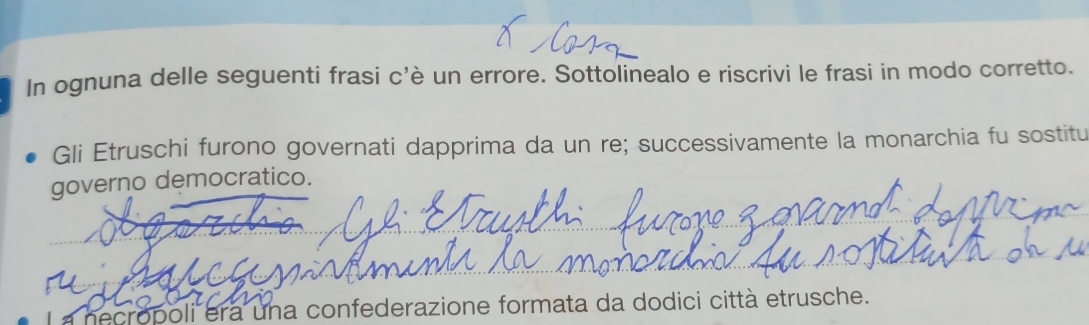 x casa
In ognuna delle seguenti frasi c'è un errore. Sottolinealo e riscrivi le frasi in modo corretto.
• Gli Etruschi furono governati dapprima da un re; successivamente la monarchia fu sostitu
governo democratico.
oligarchia Gli Etruschi furono governati dapprima
re; successivamente la monarchia fu sostituita da u
oligarchia
• La necropoli era una confederazione formata da dodici città etrusche.